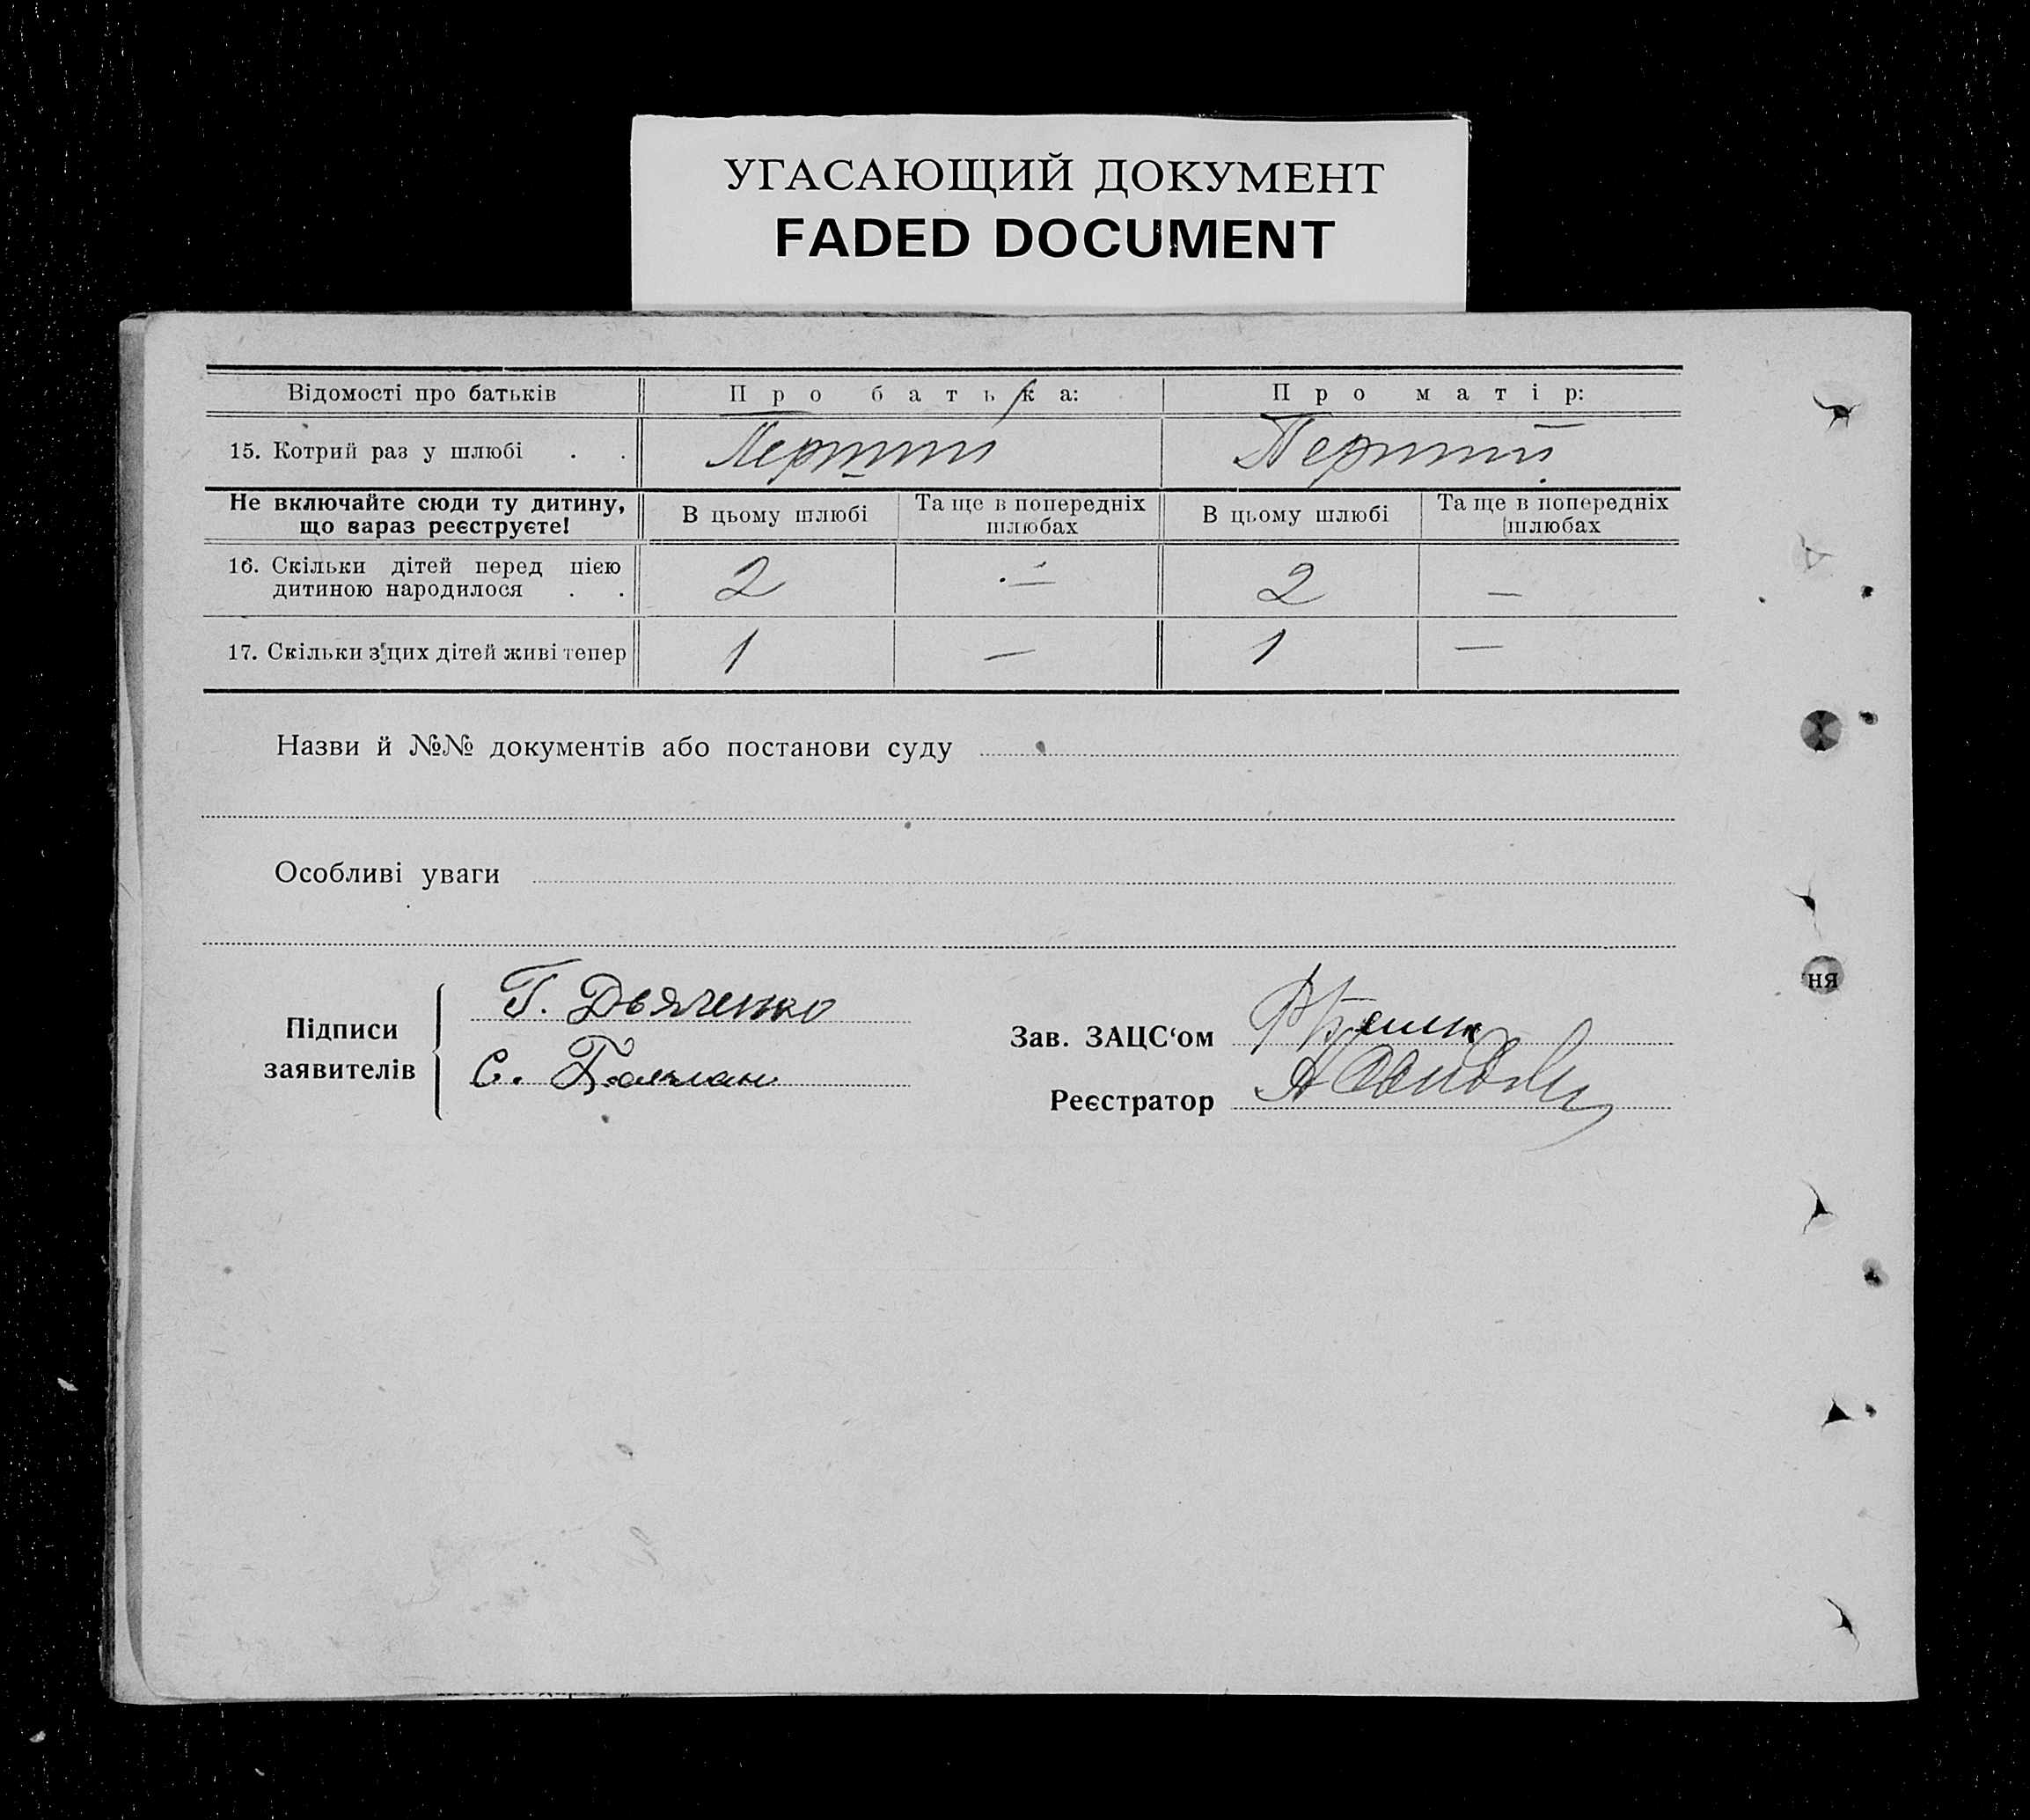 УГАСАЮЩИЙ ДОКУМЕНТ
FADED DOCUMENT
Відомості про батьків Про батька: Про матір:
15. Котрий раз у шлюбі . . Перший Перший
Не включайте сюди ту дитину, що зараз реєструєте! В цьому шлюбі Та ще в попередніх шлюбах В цьому шлюбі Та ще в попередніх шлюбах
16. Скільки дітей перед цією
дитиною народилося . . 2 — 2 —
17. Скільки з цих дітей живі тепер 1 — 1 —
Назви й №№ документів або постанови суду
Особливі уваги
Підписи заявителів
Г. Дьяченко
С.
Зав. ЗАЦС‘ом
Реєстратор
ня